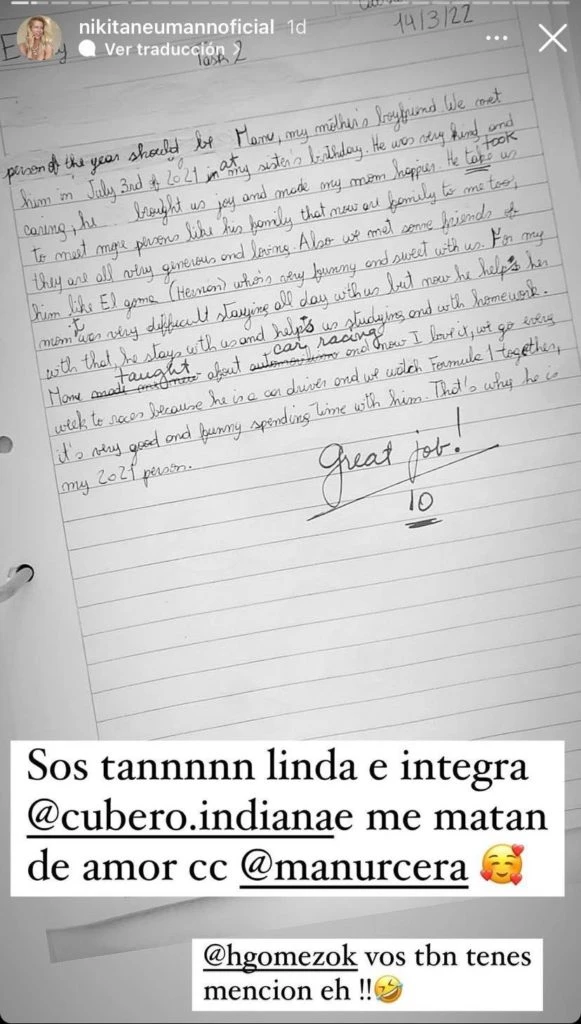 nikitaneumannoficial 1d
Ver traducción >
14/3/22
Task 2
person of the year should be Manu, my mother's boyfriend We met
him in July 3rd of 2021 in at my sister's birthday. He was very kind and
caring, he brought us joy and made my mom happier. He take took us
to meet more persons like his family that now are family to me too,
they are all very generous and loving. Also we met some friends of
him like El gome (Hernan) who's very funny and sweet with us. For my
mom it was very difficult staying all day with us but now he helps her
with that, he stays with us and helps us studying and with homework.
Manu made taught about car racing and now I love it, we go every
week to races because he is a car driver and we watch Formula 1 together,
it's very good and funny spending time with him. That's why he is
my 2021 person.
Great job!
10
Sos tannnnn linda e integra
@cubero.indianae me matan
de amor cc @manurcera 🥰
@hgomezok vos tbn tenes
mencion eh !!🤣